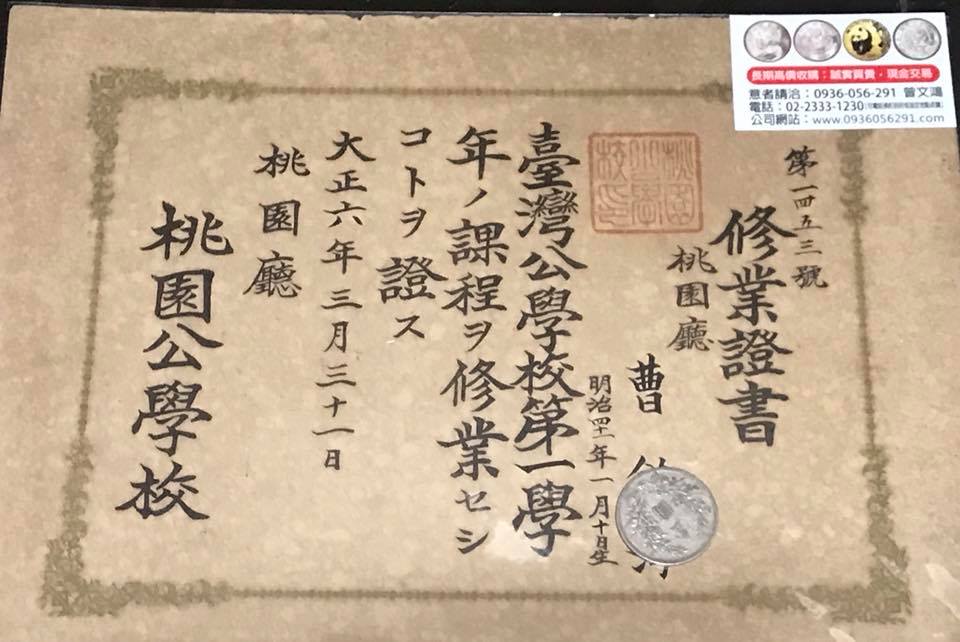 第一四五三號
修業證書
桃園廳
曹
明治四十一年一月十日生
臺灣公學校第一學
年ノ課程ヲ修業セシ
コトヲ證ス
大正六年三月三十一日
桃園廳
桃園公學校
桃園公學校印
長期高價收購：誠實買賣，現金交易
意者請洽：0936-056-291 曾文鴻
電話：02-2333-1230
公司網站：www.0936056291.com